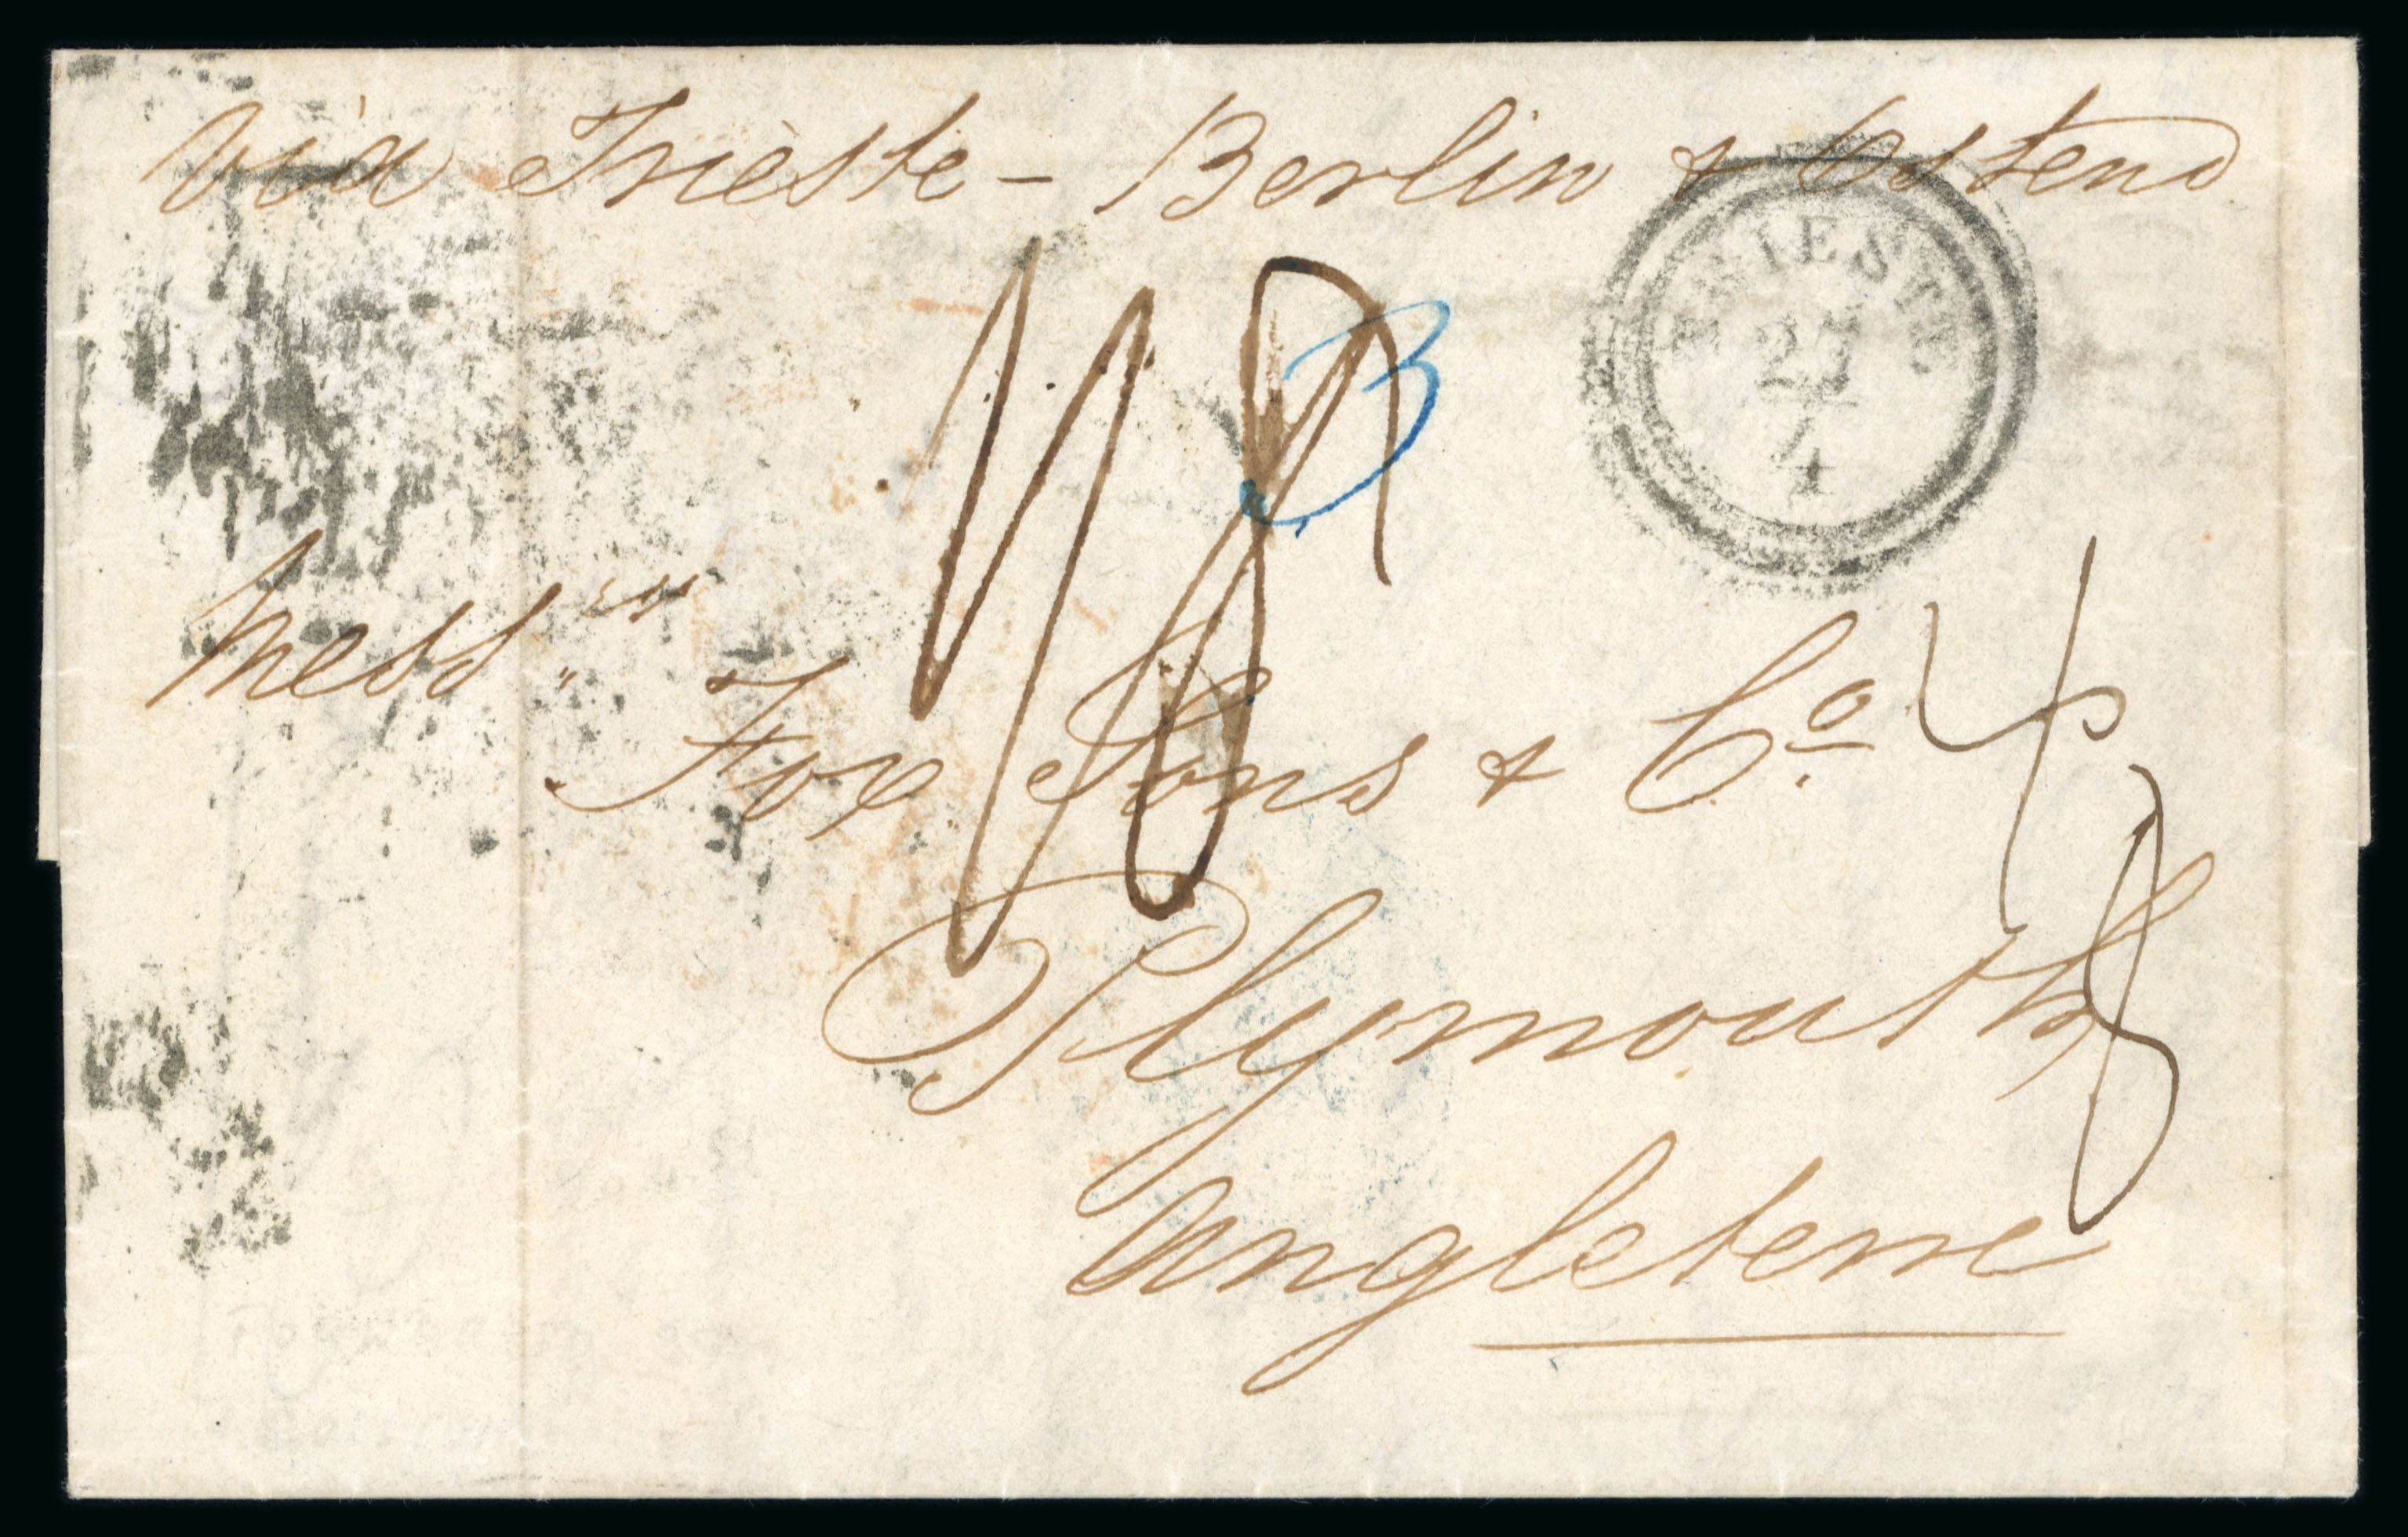 via Trieste - Berlin & Ostend
TRIESTE
Mess^rs
Fox Sons & C^o
Plymouth
Angleterre